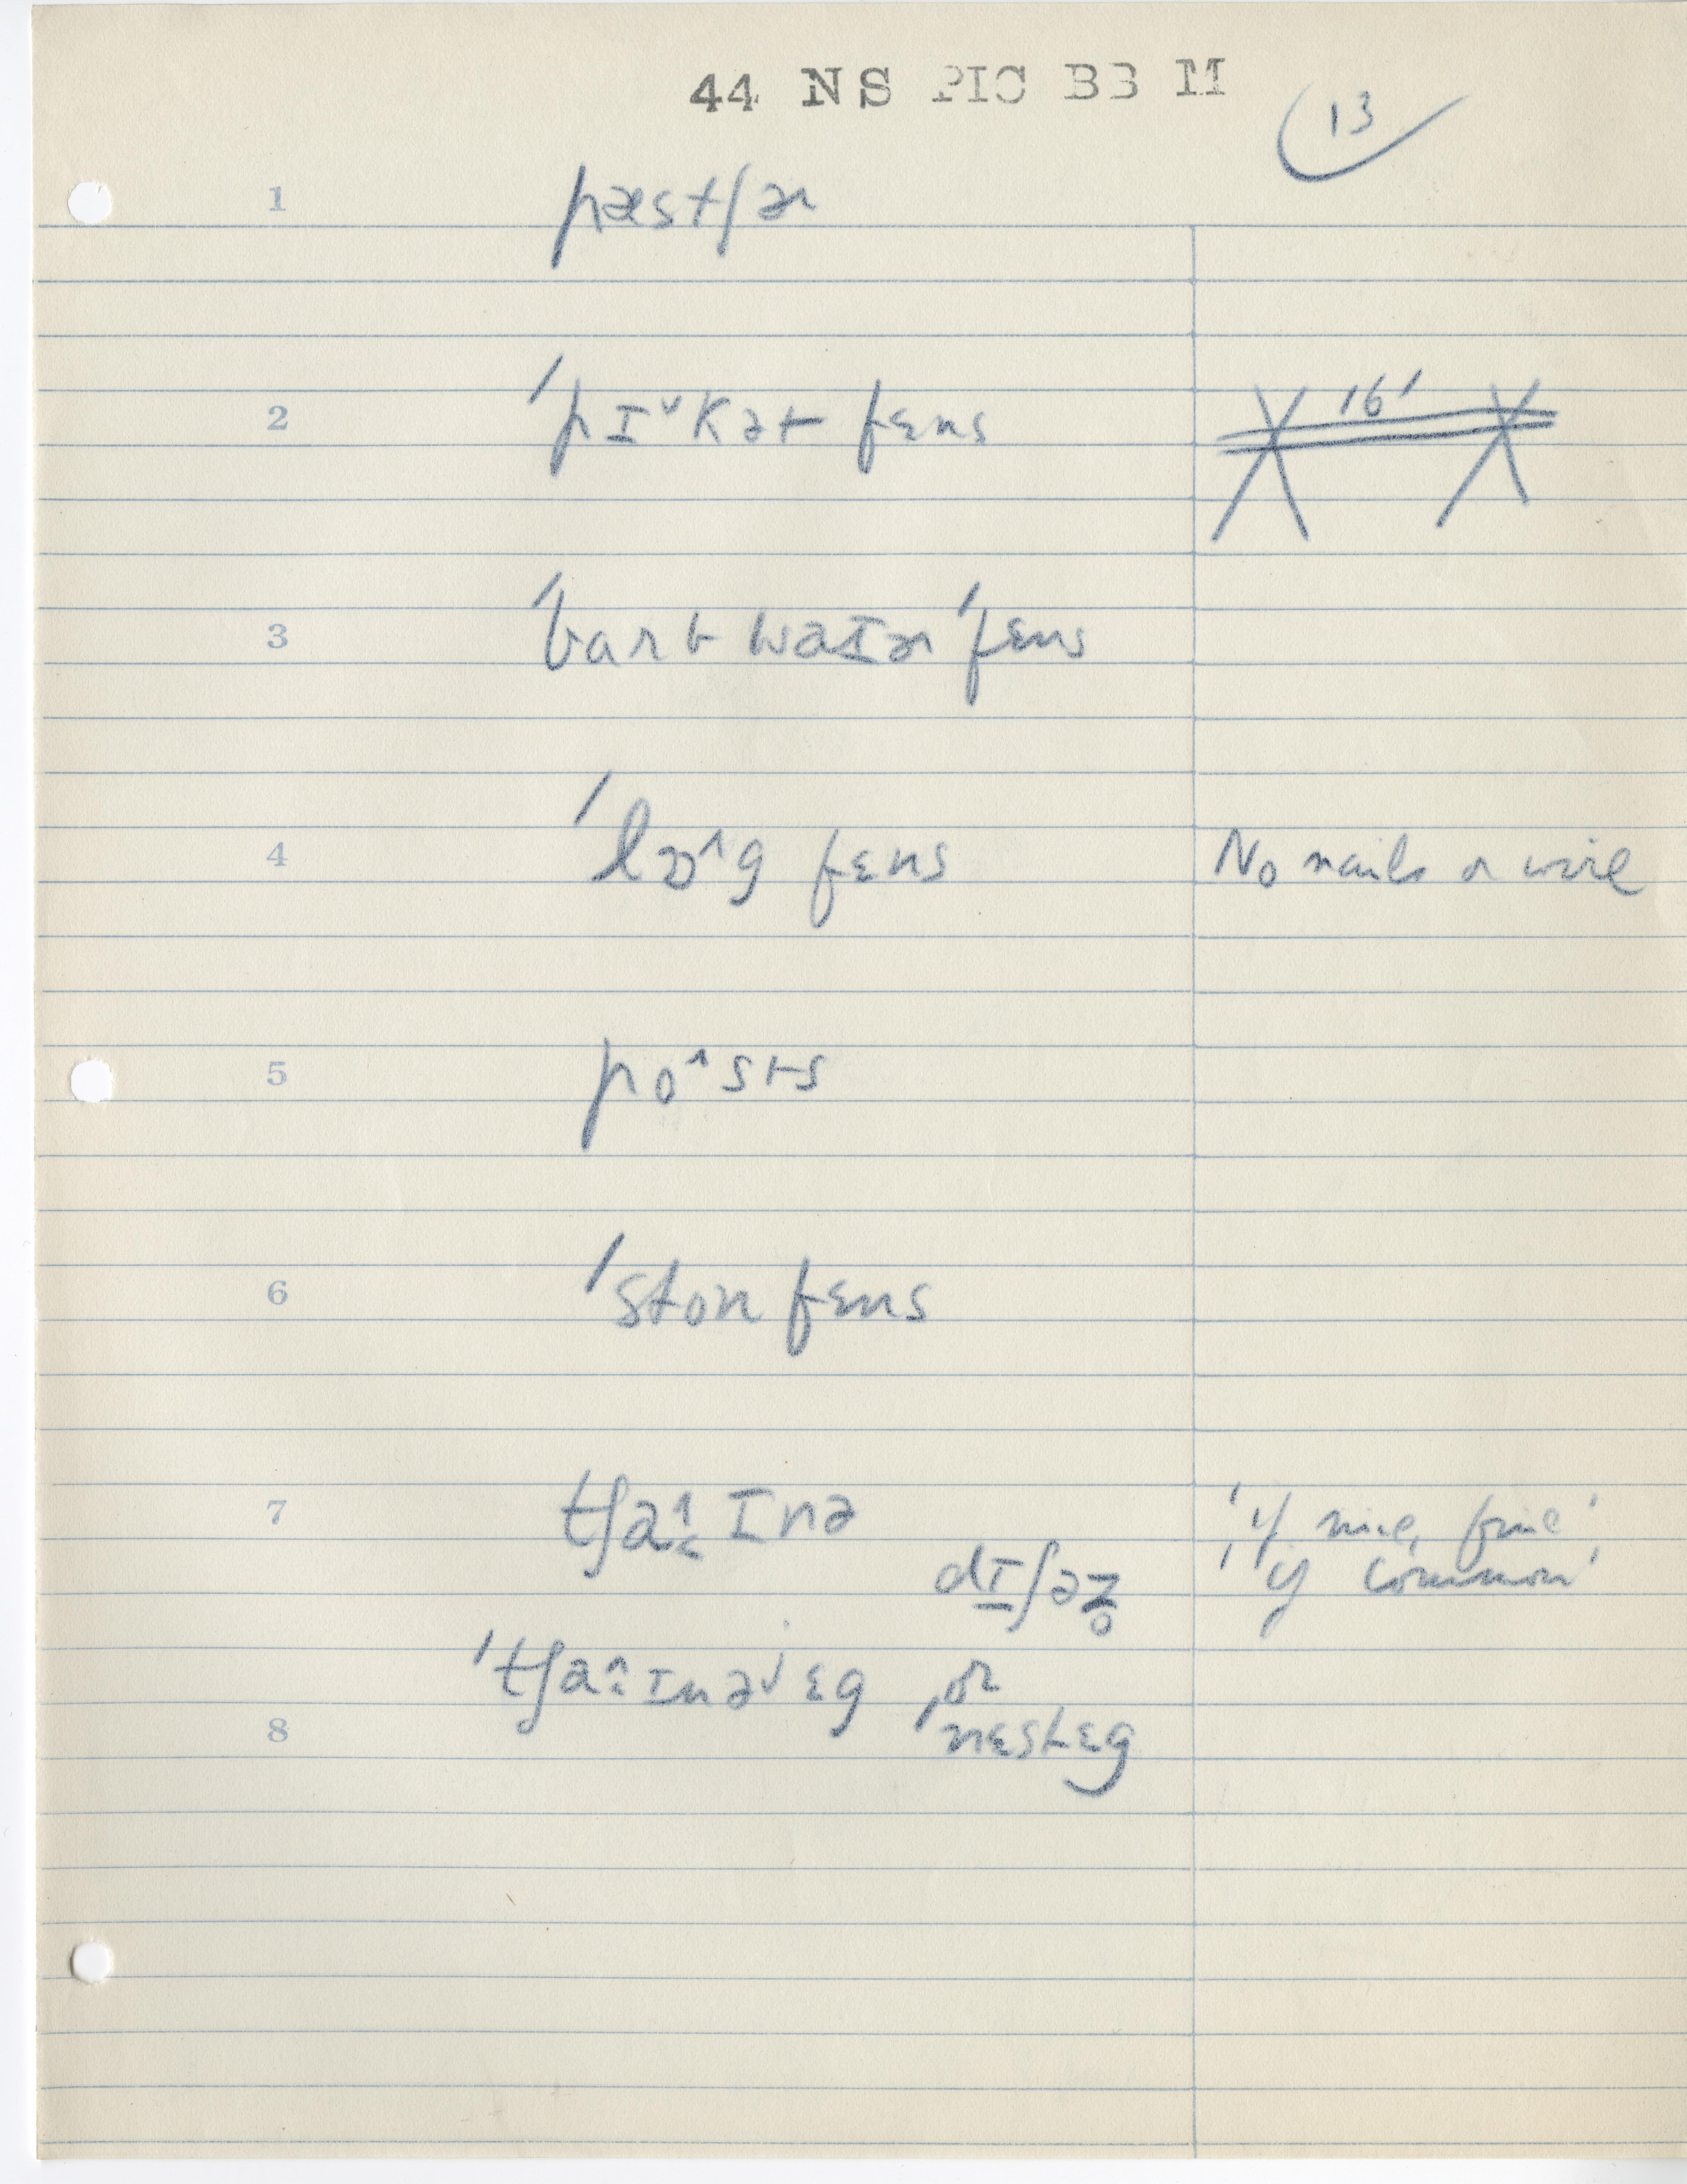 44 NS PIC BB M
13
1 pæstʃɚ
2 ˈpɪ˅kət fɛns 16'
3 ˈbarb waɪɚ ˈfɛns
4 ˈlɒ˄g fɛns No nails or wire
5 po˄sts
6 ˈston fɛns
7 tʃa˄˂ɪnə 'if nice, fine'
dɪ̠ʃəz̥ 'if common'
ˈtʃa˄˂ɪnə ɛg or
8 ˈnɛstɛg